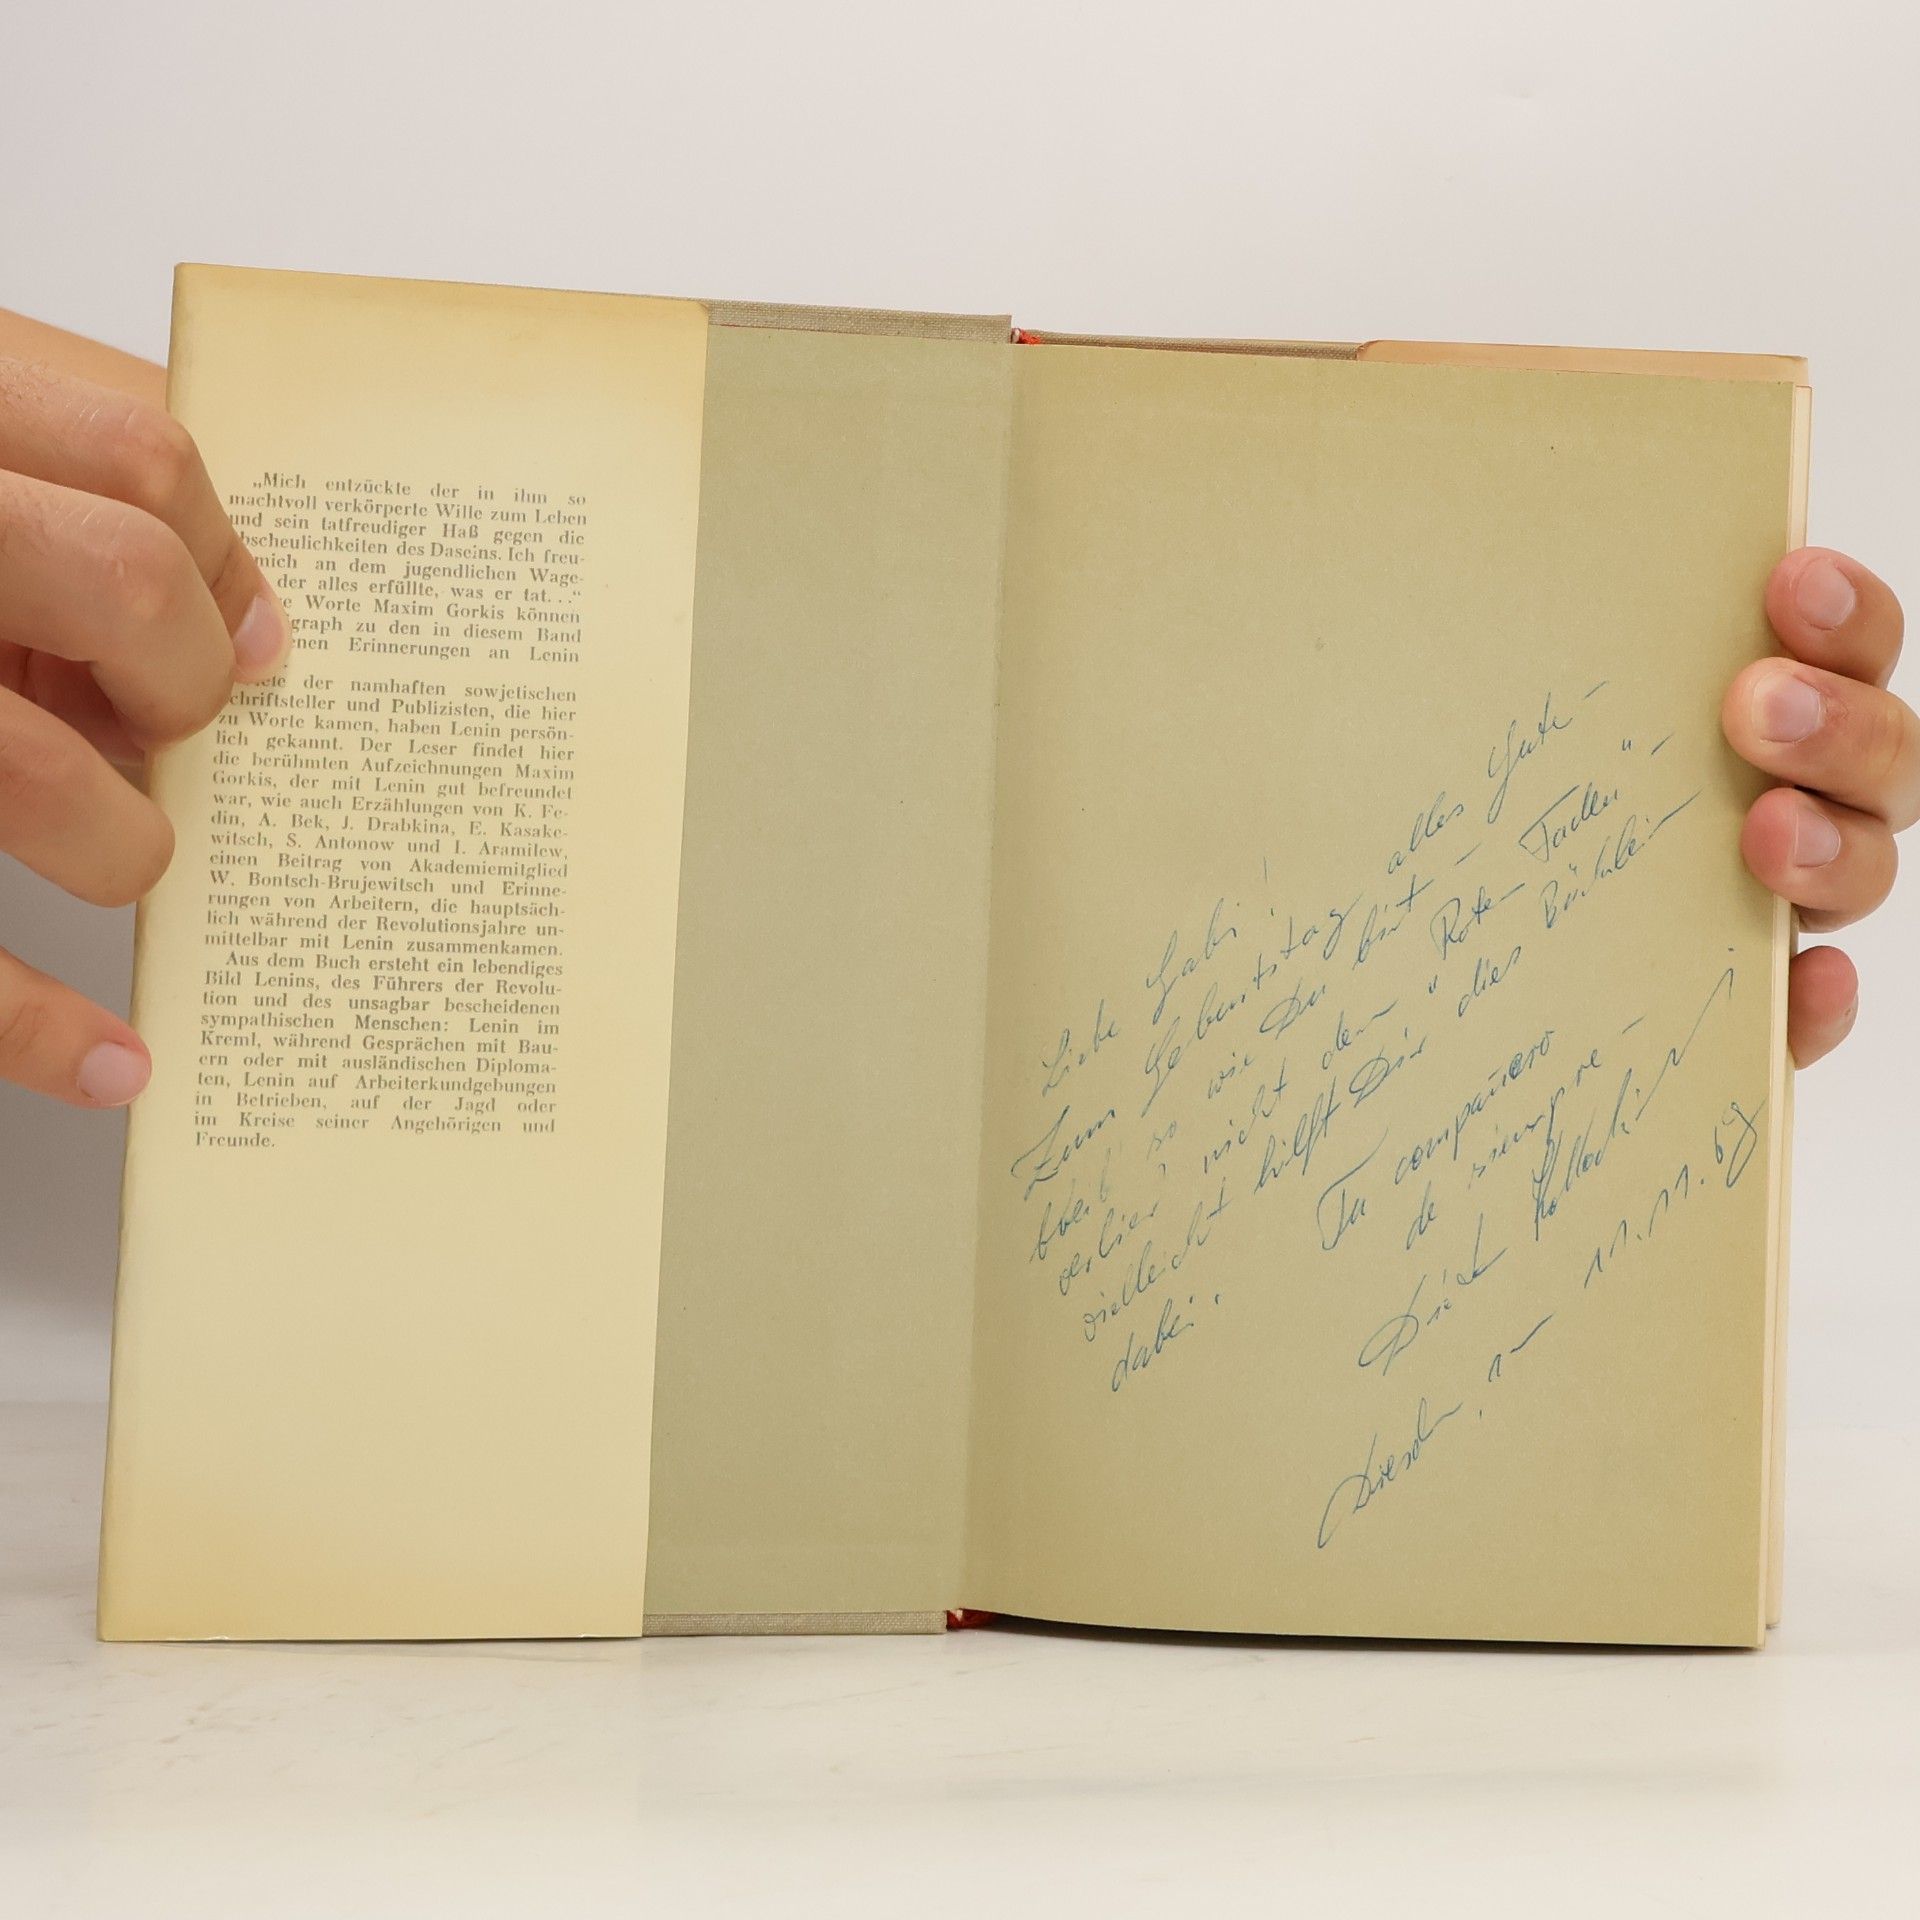 „Mich entzückte der in ihm so
machtvoll verkörperte Wille zum Leben
und sein tatfreudiger Haß gegen die
bscheulichkeiten des Daseins. Ich freu-
mich an dem jugendlichen Wage-
der alles erfüllte, was er tat. . .“
e Worte Maxim Gorkis können
igraph zu den in diesem Band
enen Erinnerungen an Lenin
.
iele der namhaften sowjetischen
chriftsteller und Publizisten, die hier
zu Worte kamen, haben Lenin persön-
lich gekannt. Der Leser findet hier
die berühmten Aufzeichnungen Maxim
Gorkis, der mit Lenin gut befreundet
war, wie auch Erzählungen von K. Fe-
din, A. Bek, J. Drabkina, E. Kasake-
witsch, S. Antonow und I. Aramilew,
einen Beitrag von Akademiemitglied
W. Bontsch-Brujewitsch und Erinne-
rungen von Arbeitern, die hauptsäch-
lich während der Revolutionsjahre un-
mittelbar mit Lenin zusammenkamen.
Aus dem Buch ersteht ein lebendiges
Bild Lenins, des Führers der Revolu-
tion und des unsagbar bescheidenen
sympathischen Menschen: Lenin im
Kreml, während Gesprächen mit Bau-
ern oder mit ausländischen Diploma-
ten, Lenin auf Arbeiterkundgebungen
in Betrieben, auf der Jagd oder
im Kreise seiner Angehörigen und
Freunde.
Liebe Gabi!
Zum Geburtstag alles Gute –
bleib so wie Du bist –
verlier nicht den "Roten Faden" –
vielleicht hilft Dir dies Büchlein
dabei.
Tu compañero
de siempre –
Dresden, 11.11.69